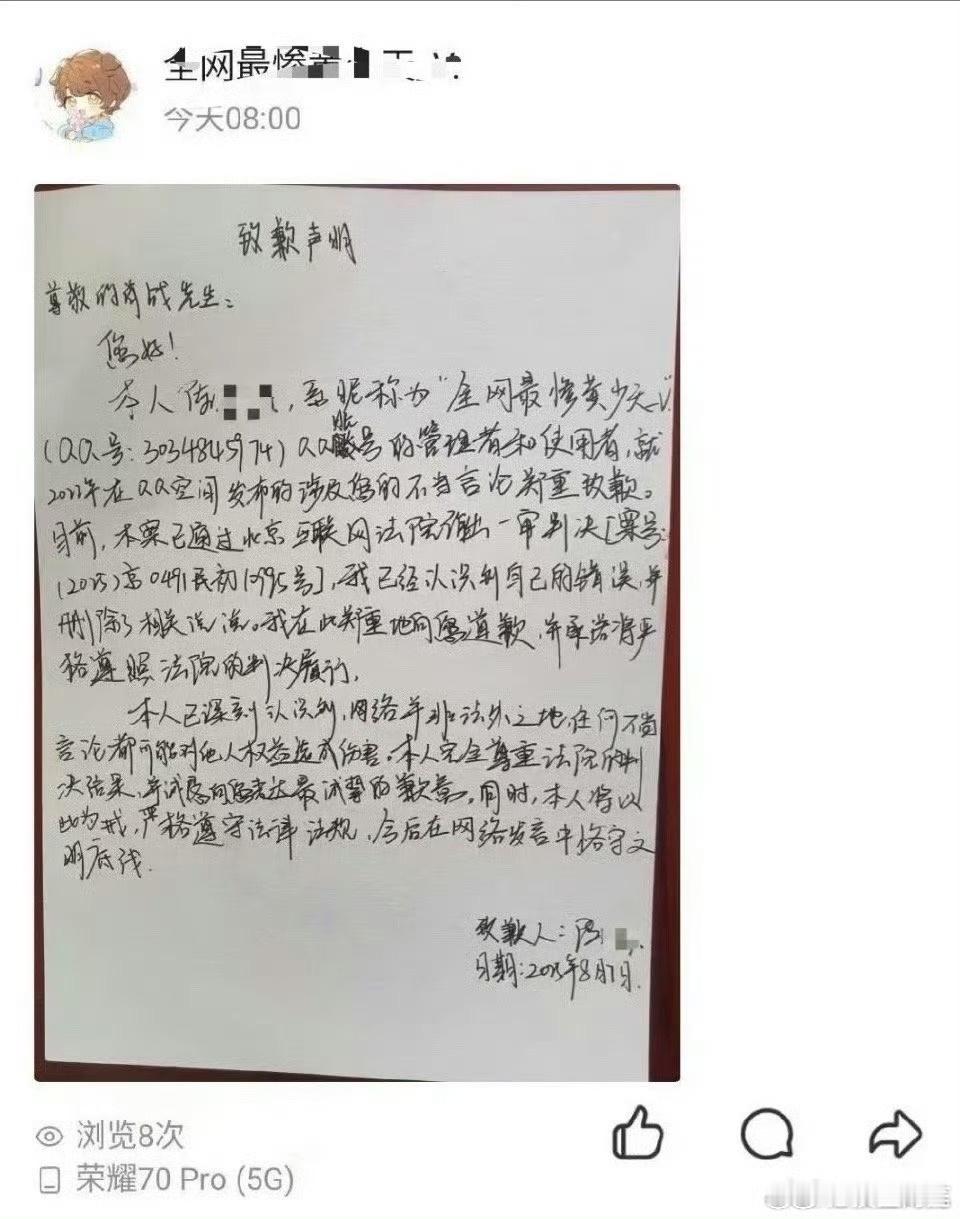 全网最惨
今天08:00
致歉声明
尊敬的肖战先生:
您好!
本人陈,系昵称为"全网最惨黄少天
(QQ号:3034845974)QQ账号的管理者和使用者,就
年在QQ空间发布的涉及您的不当言论郑重致歉。
目前,本案已通过北京互联网法院作出一审判决[案号:
(2025)京0491民初号],我已经认识到自己的错误,并
删除了相关说说。我在此郑重地向您道歉,并承诺将严
格遵照法院的判决履行。
本人已深刻认识到,网络并非法外之地,任何不当
言论都可能对他人权益造成伤害。本人完全尊重法院的判
决结果,并诚恳向您表达最诚挚的歉意。同时,本人将以
此为戒,严格遵守法律法规,今后在网络发言中恪守文
明底线.
致歉人:
日期:2025年8月7日.
浏览8次
荣耀70 Pro (5G)